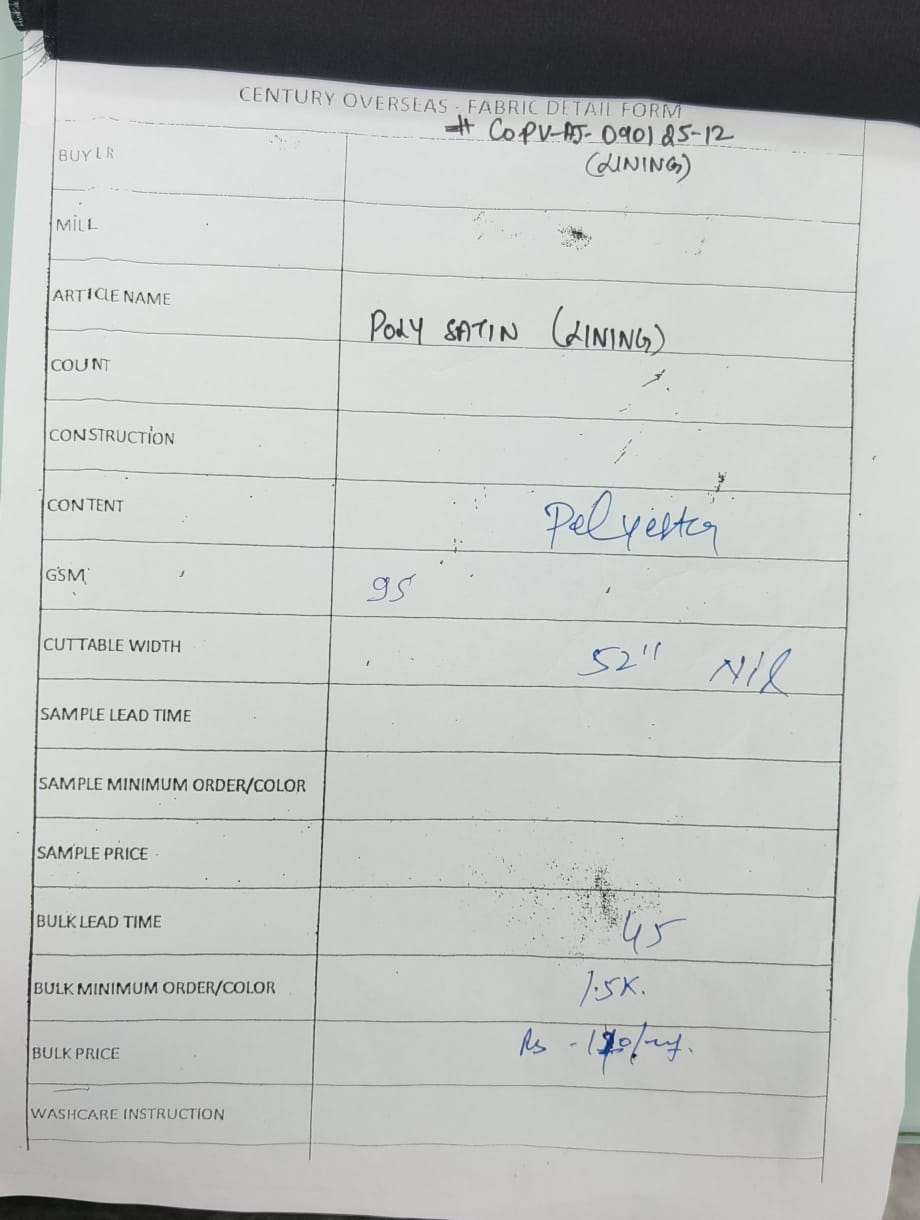 CENTURY OVERSEAS - FABRIC DETAIL FORM
# COPV-AJ-090125-12
BUYER (LINING)
MILL
ARTICLE NAME POLY SATIN (LINING)
COUNT
CONSTRUCTION
CONTENT Polyester
GSM 95
CUTTABLE WIDTH 52"
SAMPLE LEAD TIME
SAMPLE MINIMUM ORDER/COLOR
SAMPLE PRICE
BULK LEAD TIME 45
BULK MINIMUM ORDER/COLOR 1.5K.
BULK PRICE Rs -
WASHCARE INSTRUCTION